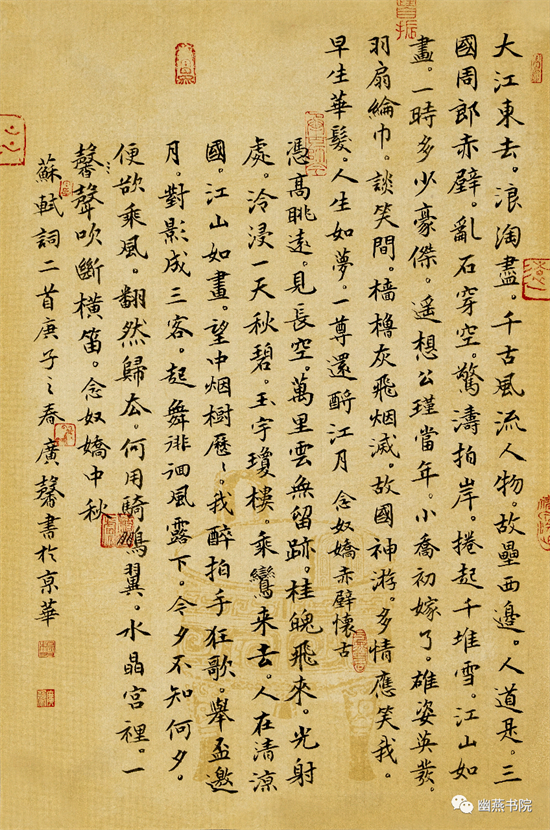 大江東去。浪淘盡。千古風流人物。故壘西邊。人道是。三
國周郎赤壁。亂石穿空。驚濤拍岸。捲起千堆雪。江山如
畫。一時多少豪傑。遥想公瑾當年。小喬初嫁了。雄姿英發。
羽扇綸巾。談笑間。檣櫓灰飛烟滅。故國神游。多情應笑我。
早生華髮。人生如夢。一尊還酹江月 念奴嬌赤壁懷古
憑高眺遠。見長空。萬里雲無留跡。桂魄飛來。光射
處。泠浸一天秋碧。玉宇瓊樓。乘鸞来去。人在清凉
國。江山如畫。望中烟樹歷〻。我醉拍手狂歌。舉盃邀
月。對影成三客。起舞徘徊風露下。今夕不知何夕。
便欲乘風。翻然歸去。何用騎鵬翼。水晶宮裡。一
馨聲吹斷橫笛。念奴嬌中秋
蘇軾詞二首庚子之春廣馨書於京華
幽燕书院